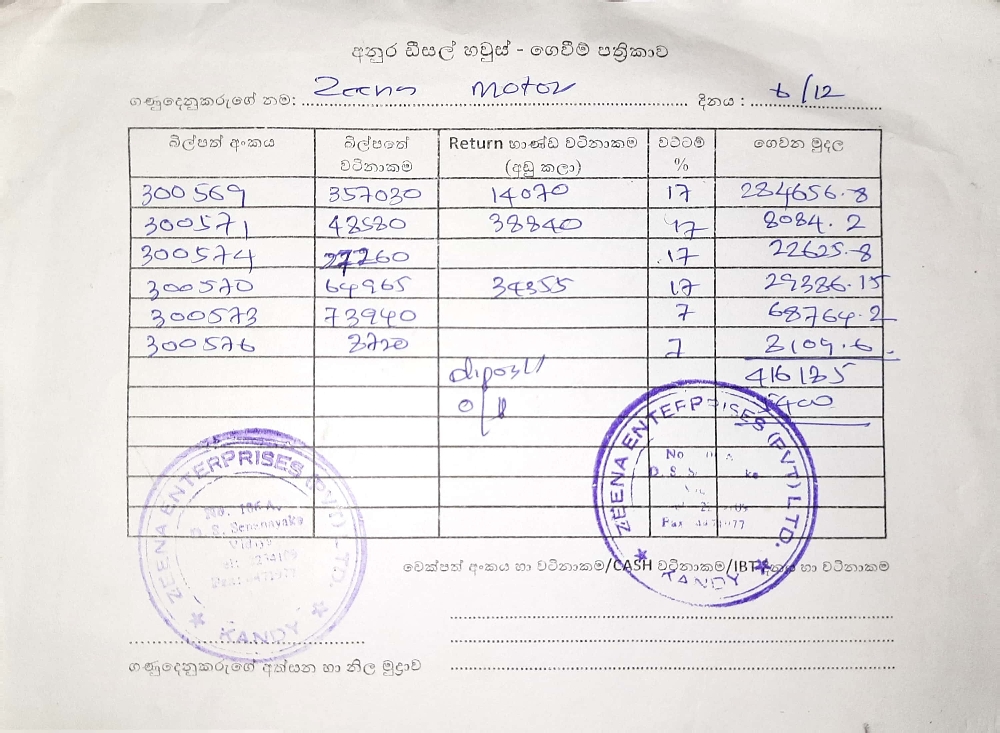 අනුර ඩීසල් හවුස් - ගෙවීම් පත්‍රිකාව
ගණුදෙනුකරුගේ නම: Zeena motor දිනය : 6/12
බිල්පත් අංකය බිල්පතේ වටිනාකම Return භාණ්ඩ වටිනාකම (අඩු කලා) වට්ටම් % ගෙවන මුදල
300569 357030 14070 17 284656.8
300571 48580 38840 17 8084.2
300574 27260 17 22625.8
300570 64965 34355 17 29386.15
300573 73940 7 68764.2
300576 7
416125
5400
ZEENA ENTERPRISES (PVT) LTD.
No. 186A,
D. S. Senanayake
Vidiya
KANDY
ZEENA ENTERPRISES (PVT) LTD.
No
KANDY
චෙක්පත් අංකය හා වටිනාකම/CASH වටිනාකම/IBT දිනය හා වටිනාකම
ගණුදෙනුකරුගේ අත්සන හා නිල මුද්‍රාව